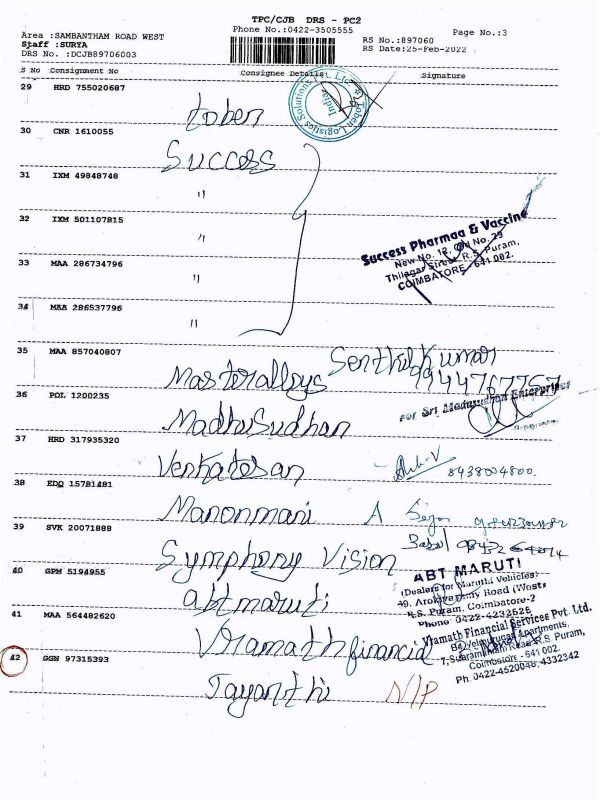 TPC/CJB DRS - PC2
Phone No.:0422-3505555
Page No.:3
Area :SAMBANTHAM ROAD WEST
Staff :SURYA
DRS No. :DCJB89706003
RS No.:897060
RS Date:25-Feb-2022
S No Consignment No Consignee Details Signature
29 HRD 755020687
toben
Toben Logistics Solutions Pvt. Ltd.
India
30 CNR 1610055
Success
31 IXM 49848748
"
32 IXM 501107815
"
Success Pharmaa & Vaccine
New No. 12, Old No. 29
Thilagar Street, R.S. Puram,
COIMBATORE - 641 002.
33 MAA 286734796
"
34 MAA 286537796
"
35 MAA 857040807
Masteralloys Senthil Kumar
9944767757
36 POL 1200235
Madhusudhan
For Sri Madhusudhan Enterprises
37 HRD 317935320
Venkatesan
8438004800.
38 EDQ 15781481
Manonmani A
39 SVK 20071888
Symphony Vision
40 GPM 5194955
abtmaruti
ABT MARUTI
(Dealers for Maruthi Vehicles)
Road (West)
R.S. Puram, Coimbatore-2
Phone 0422-4232525
41 MAA 564482620
Vramath financial
Vramath Financial Services Pvt. Ltd.
Apartments,
R.S. Puram,
Coimbatore - 641 002.
Ph. 0422-4520048, 4332342
42 GGN 97315393
Jayanthi N/P